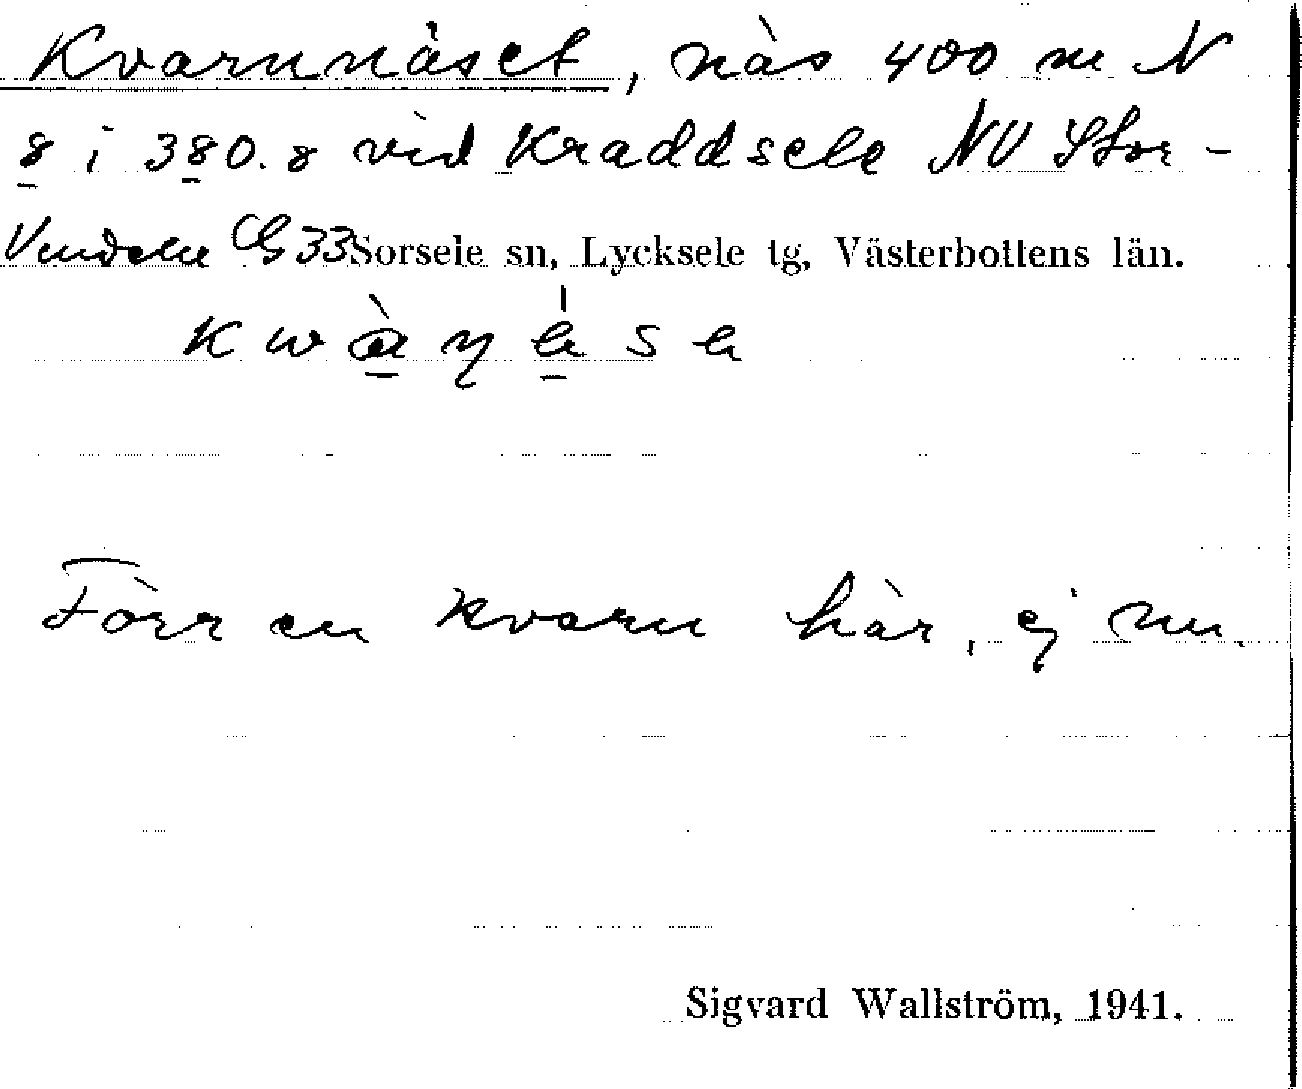 Kvarnnäset, näs 400 m N
8 i 380.8 vid Kraddsele NV Stor-
Vindeln G33 Sorsele sn, Lycksele tg, Västerbottens län.
Förr en kvarn här, ej nu.
Sigvard Wallström, 1941.